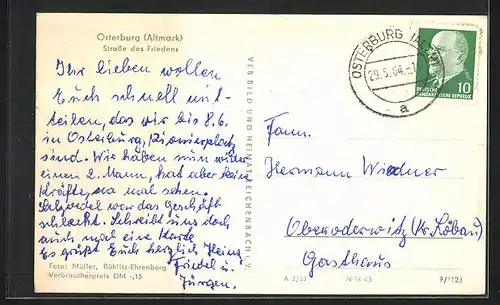 Osterburg (Altmark)
Straße des Friedens
Ihr lieben wollen
Euch schnell mit-
teilen, das wir bis 8.6.
in Osterburg, Pionierplatz
sind. Wir haben nun wieder
einen 2. Mann, hat aber keine
Kräfte, na mal sehen.
war das Geschäft
schlecht. Schreibt uns doch
auch mal eine Karte
Es grüßt Euch herzlich Heinz
Friedel u.
Jürgen.
Foto: Müller, Böhlitz-Ehrenberg
Verbraucherpreis DM -,15
VEB BILD UND HEIMAT REICHENBACH i. V.
OSTERBURG
29.5.64
a
DEUTSCHE
DEMOKRATISCHE REPUBLIK
10
Fam.
Hermann
Oberoderwitz (Kr. Löbau)
Gasthaus